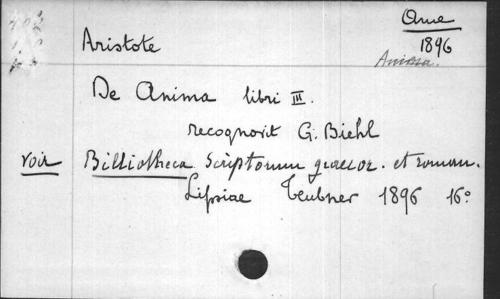 Ame
Aristote
1896
Anima.
De Anima libri III.
recognovit G. Biehl
voir Bibliotheca Scriptorum graecor. et roman.
Lipsiae Teubner 1896 16°